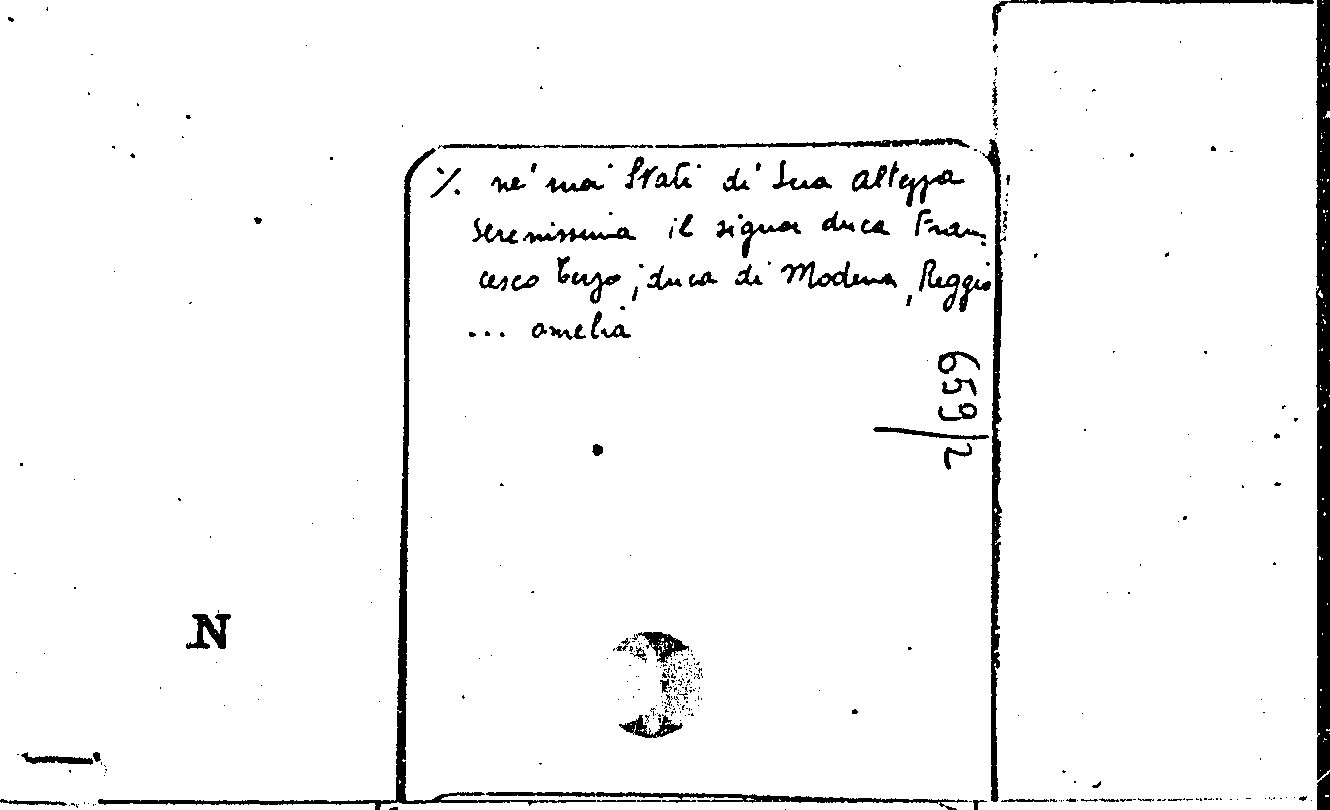 ./. ne' suoi Stati di Sua Altezza
serenissima il signor duca Fran-
cesco terzo, duca di Modena, Reggio
... amelia
659/2
N